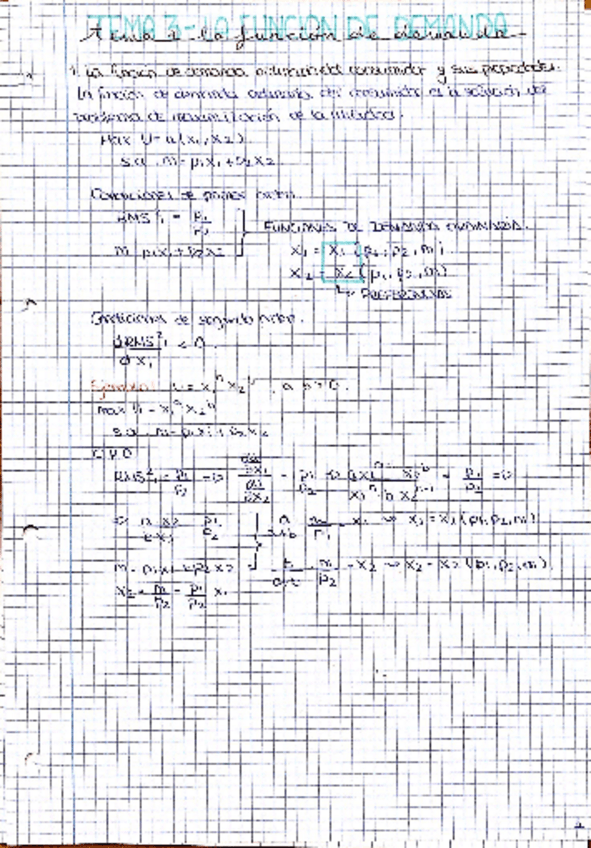 TEMA 3 - LA FUNCIÓN DE DEMANDA
Tema 3 la función de demanda.
1. La función de demanda ordinaria del consumidor y sus propiedades.
La función de demanda ordinaria del consumidor es la solución del
problema de maximización de la utilidad.
Max U = u(x₁, x₂)
s.a. m = p₁x₁ + p₂x₂
Condiciones de primer orden.
RMS²₁ = p₁/p₂
m = p₁x₁ + p₂x₂
FUNCIONES DE DEMANDA ORDINARIA.
x₁ = x₁ (p₁, p₂, m)
x₂ = x₂ (p₁, p₂, m)
↳ PREFERENCIAS
Condiciones de segundo orden.
dRMS²₁/dx₁ < 0.
Ejemplo: u = x₁ᵃ x₂ᵇ, a, b > 0.
max U = x₁ᵃ x₂ᵇ
s.a. m = p₁x₁ + p₂x₂
C.P.O
RMS²₁ = p₁/p₂ => (∂u/∂x₁)/(∂u/∂x₂) = p₁/p₂ => (a x₁ᵃ⁻¹ x₂ᵇ)/(x₁ᵃ b x₂ᵇ⁻¹) = p₁/p₂ =>
=> a x₂/b x₁ = p₁/p₂ a/a+b m/p₁ = x₁ => x₁ = x₁(p₁, p₂, m)
m = p₁x₁ + p₂x₂ b/a+b m/p₂ = x₂ => x₂ = x₂(p₁, p₂, m)
x₂ = m/p₂ - p₁/p₂ x₁